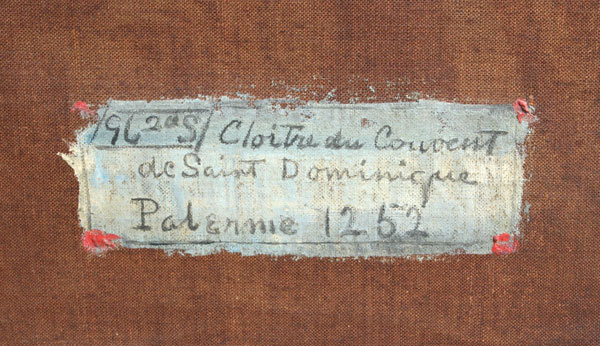 Cloitre du Couvent
de Saint Dominique
Palerme 1252